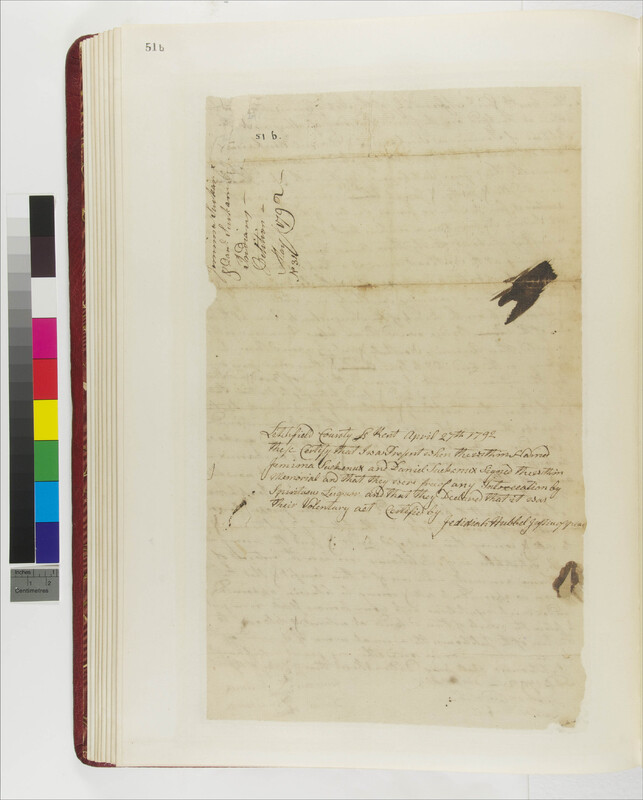 51 b
51 b.
Jemima Suckn
& Dan.l Suckn
Indians
Petition
May 1792
Litchfield County Ss Kent April 27th 1792
these Certify that I was Present when the within Named
Jemima Suckenux and Daniel Suckenux Signed the within
Memorial and that they were free of any Intoxecation by
Spiritous Liquor and that they Declered that it was
their Voluntary act Certified by
Jedidiah Hubbel Justice of peace
inches 1 2
Centimetres